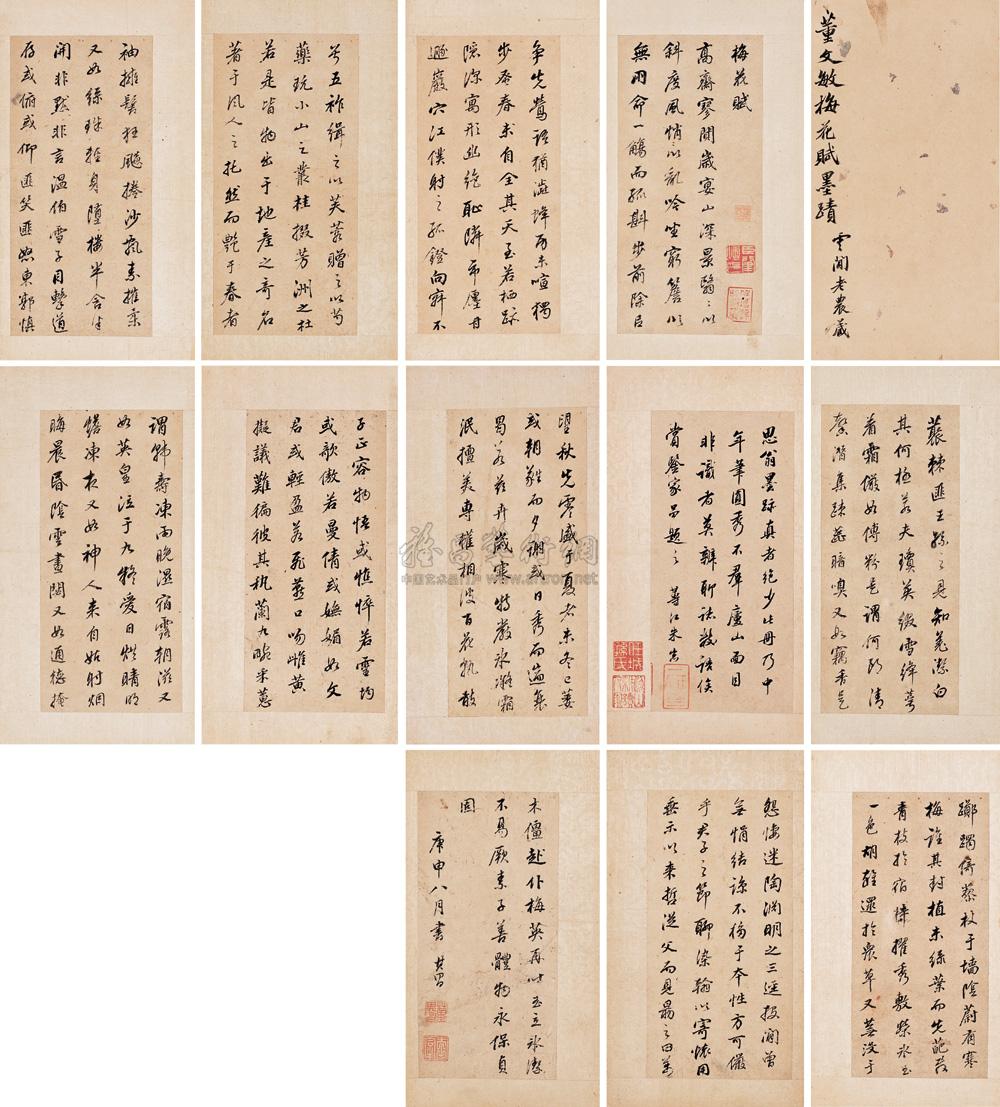 董文敏梅花賦墨蹟
雲間老農藏
梅花賦
高齋寥闃歲宴山深景翳〻以
斜度風悄〻以亂吟坐窮簷以
無朋命一觴而孤斟步前除以
躑躅倚藜杖于墻陰蔚有寒
梅誰其封植未綠葉而先葩發
青枝於宿枿擢秀敷榮冰玉
一色胡雜還於衆草又蕪沒于
叢棘匪王孫之見知羌潔白
其何極若夫瓊英綴雪絳萼
著霜儼如傅粉是謂何郎清
馨潛集疎蕊暗嗅又如竊香是
謂韓壽凍雨晚濕宿露朝滋又
如英皇泣于九嶷愛日烘晴明
蟾凍夜又如神人來自姑射烟
晦晨昏陰雲晝閟又如通德掩
袖擁髻狂飈捲沙飄素摧柔
又如綠珠輕身墮樓半含半
開非默非言溫伯雪子目擊道
存或俯或仰匪笑匪怒東郭慎
子正容物悟或憔悴若靈均
或歌傲若曼倩或嫵媚如文
君或輕盈若飛燕口吻雌黃
擬議難徧彼其執蘭九畹采蕙
兮五柞緝之以芙蓉贈之以芍
藥玩小山之叢桂掇芳洲之杜
若是皆物出于地產之奇名
著于風人之托然而艷于春者
望秋先零盛于夏者未冬已萎
或朝華而夕謝或日秀而遄衰
曷若茲卉歲寒特敷冰凝霜
沍擅美專權相彼百花孰敢
爭先鶯語猶澀蜂房未喧獨
步春自全其天至若栖跡
隱深寓形幽絕恥隣市廛甘
遯巖穴江僕射之孤鐙向寂不
怨悽迷陶淵明之三逕投閒曾
無悁結諒不移于本性方可儷
乎君子之節聊染翰以寄懷用
垂示以來哲從父而見勗之曰萬
木僵赴仆梅英再吐玉立冰潔
不易厥素子善體物永保貞
固
庚申八月書 其昌
思翁墨跡真者絕少此冊乃中
年筆圓秀不羣廬山面目
非識者莫辨聊誌數語俟
賞鑒家品題之